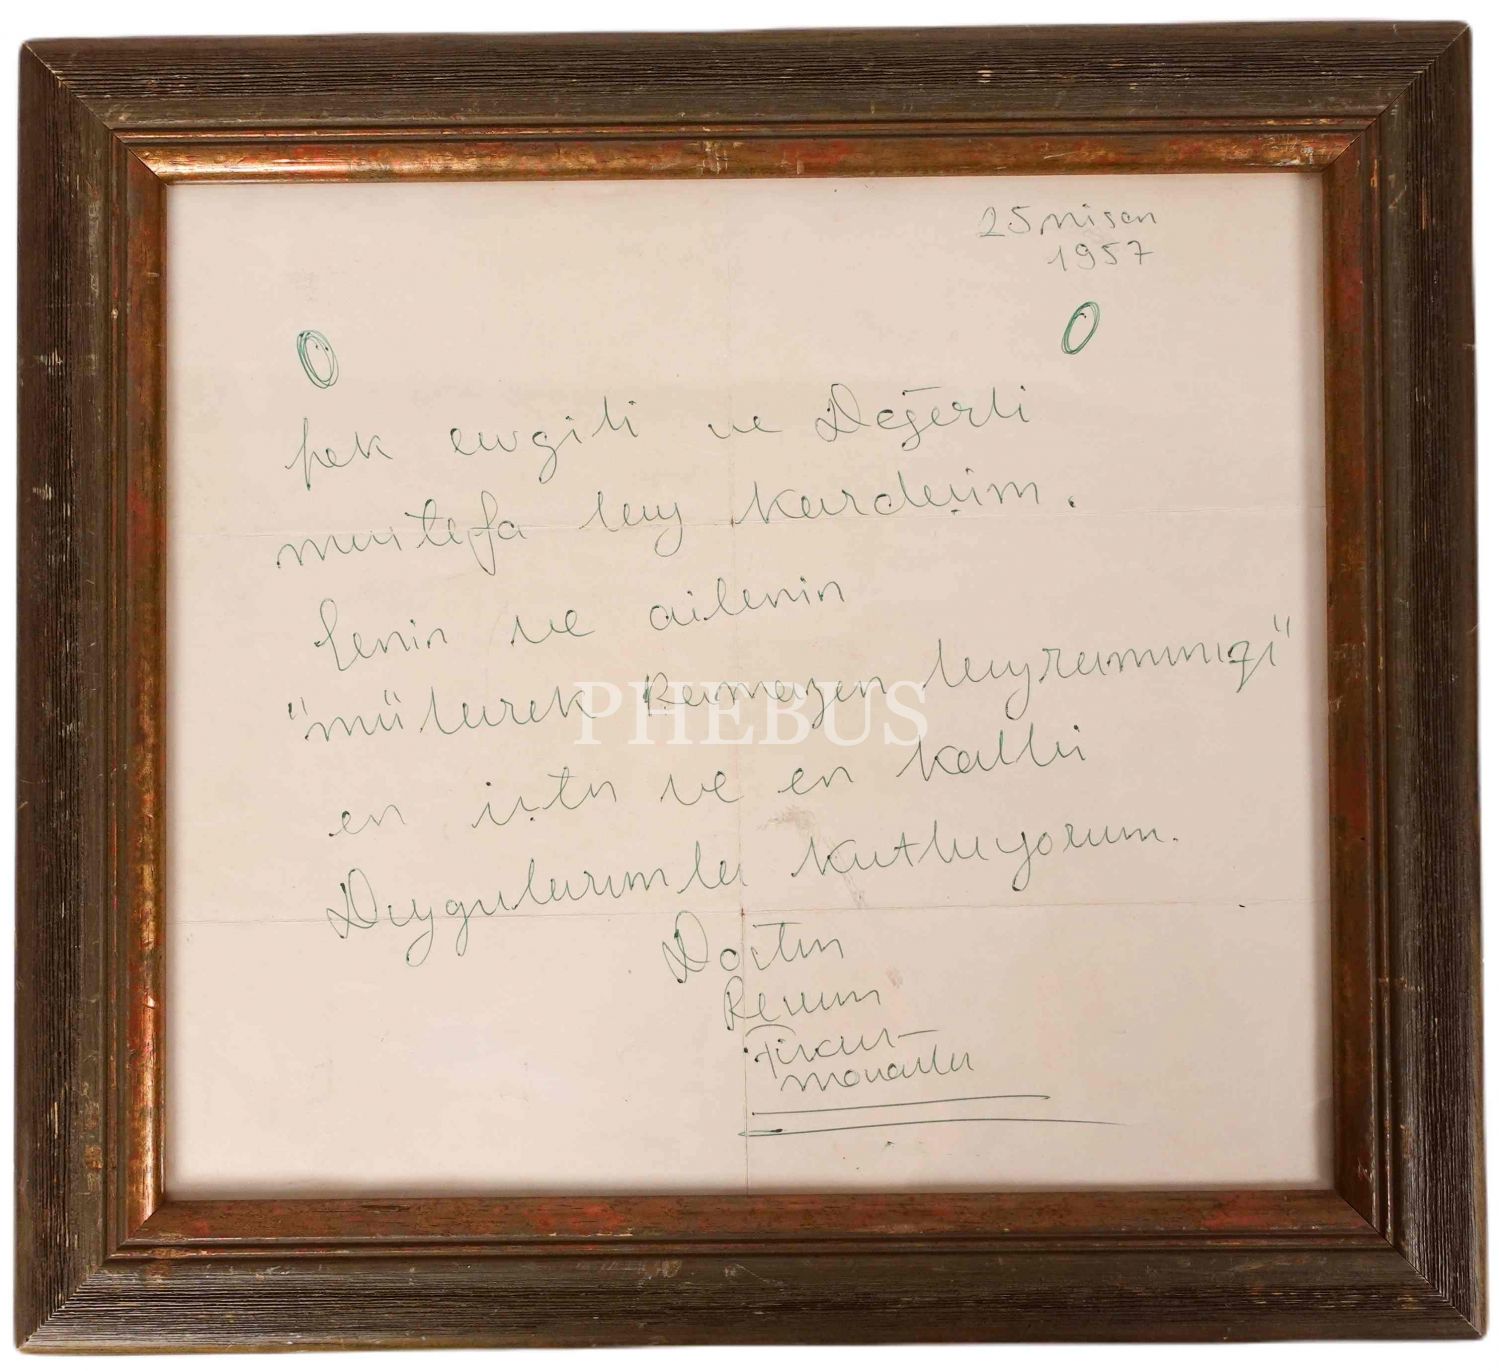 25 nisan
1957
Pek sevgili ve Değerli
mustafa bey kardeşim.
Senin ve ailenin
"mübarek Ramazan bayramınızı"
en içtn ve en kalbi
Duygularımla kutluyorum.
Dostun
PHEBUS